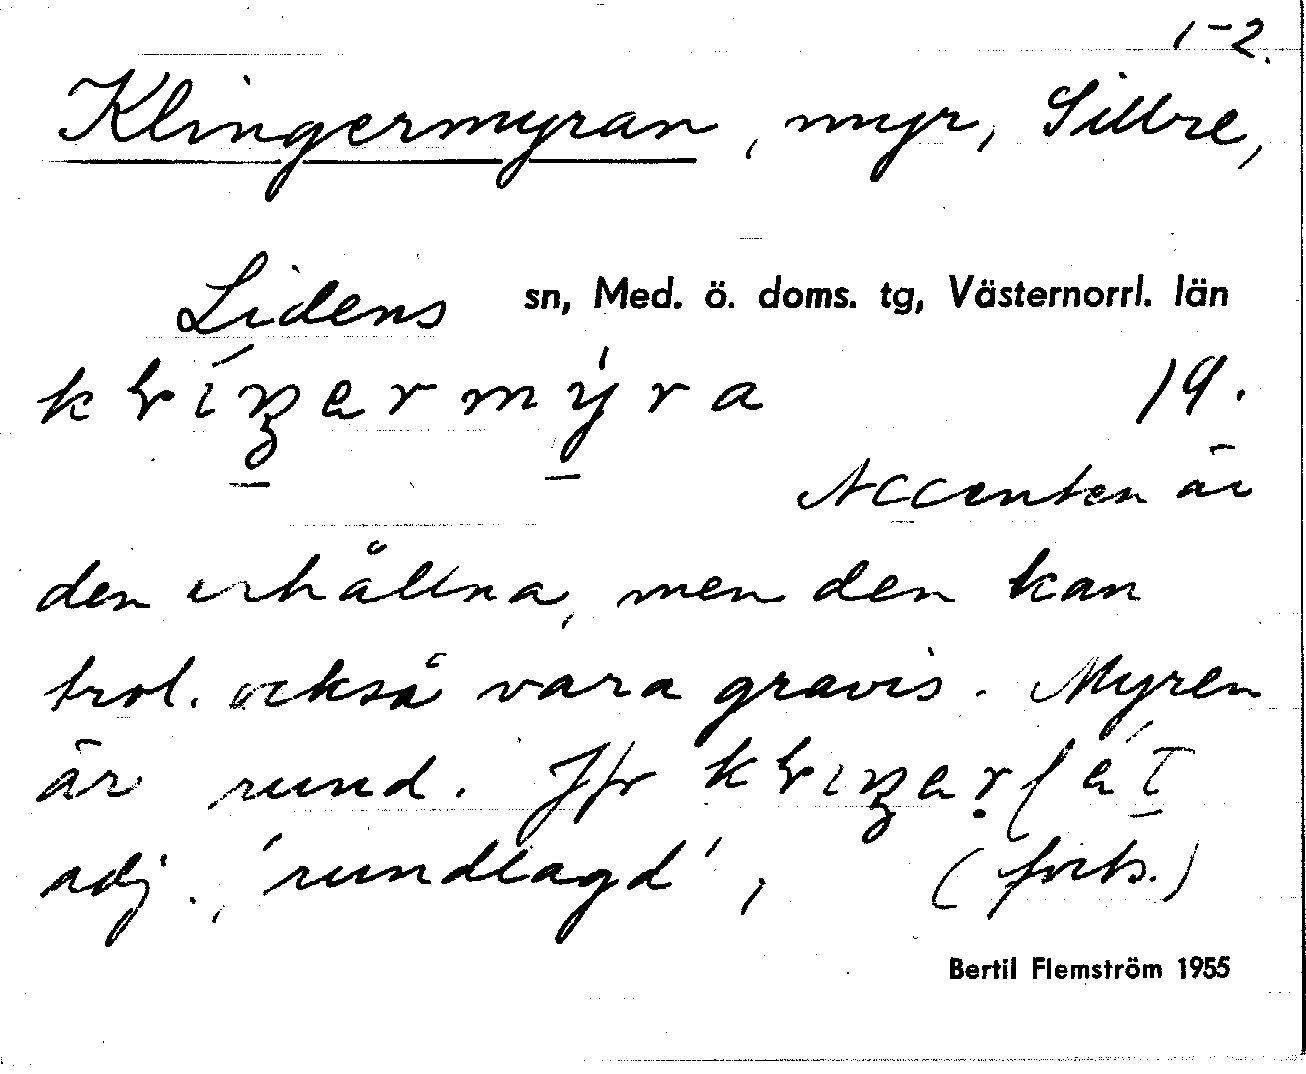 1-2.
Klingermyran, myr, Sillre,
Lidens sn, Med. ö. doms. tg, Västernorrl. län
19.
Accenten är
den erhållna, men den kan
trol. också vara gravis. Myren
är rund. Jfr
adj., 'rundlagd', (forts.)
Bertil Flemström 1955